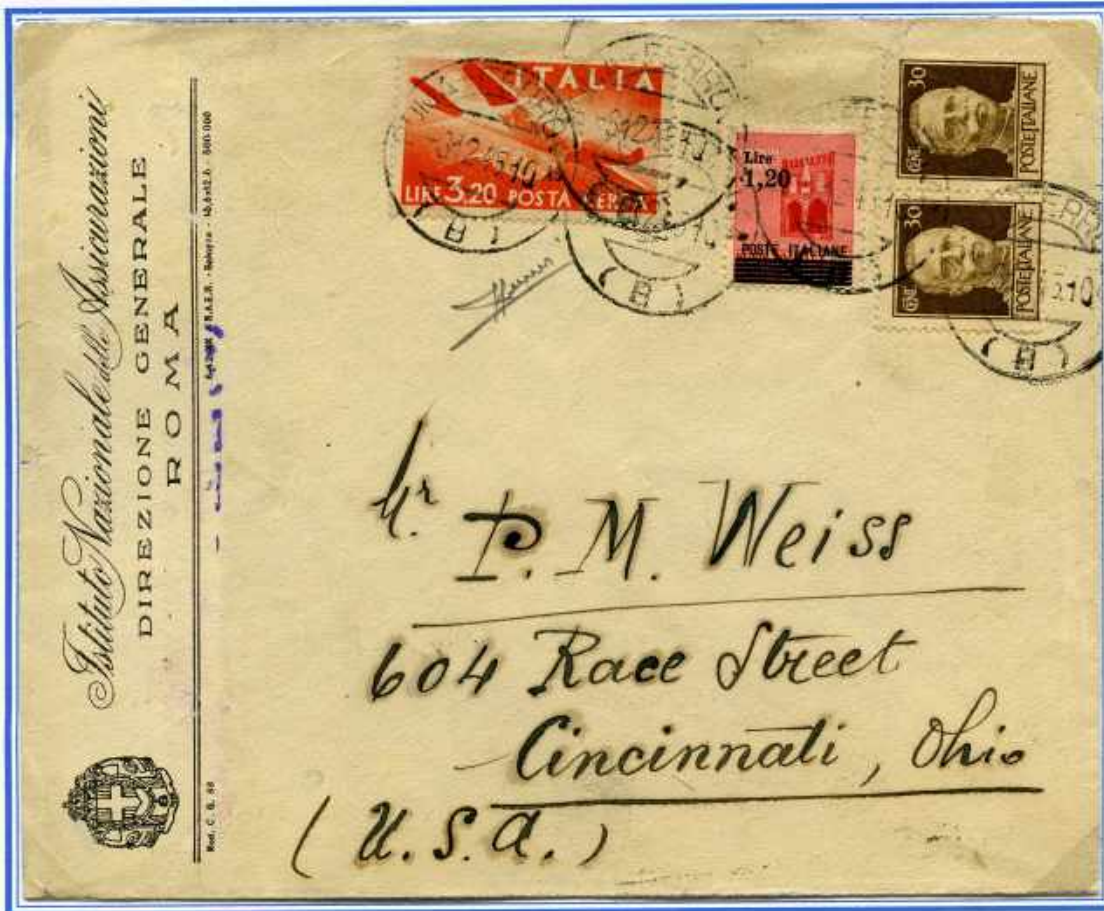 Istituto Nazionale delle Assicurazioni
DIREZIONE GENERALE
ROMA
Mod. C. G. 88
ITALIA
LIRE 3.20 POSTA AEREA
Lire
1,20
POSTE ITALIANE
30
CENT.
POSTE ITALIANE
30
CENT.
POSTE ITALIANE
(B)
(B)
(B)
Mr P. M. Weiss
604 Race Street
Cincinnati, Ohio
(U.S.A.)